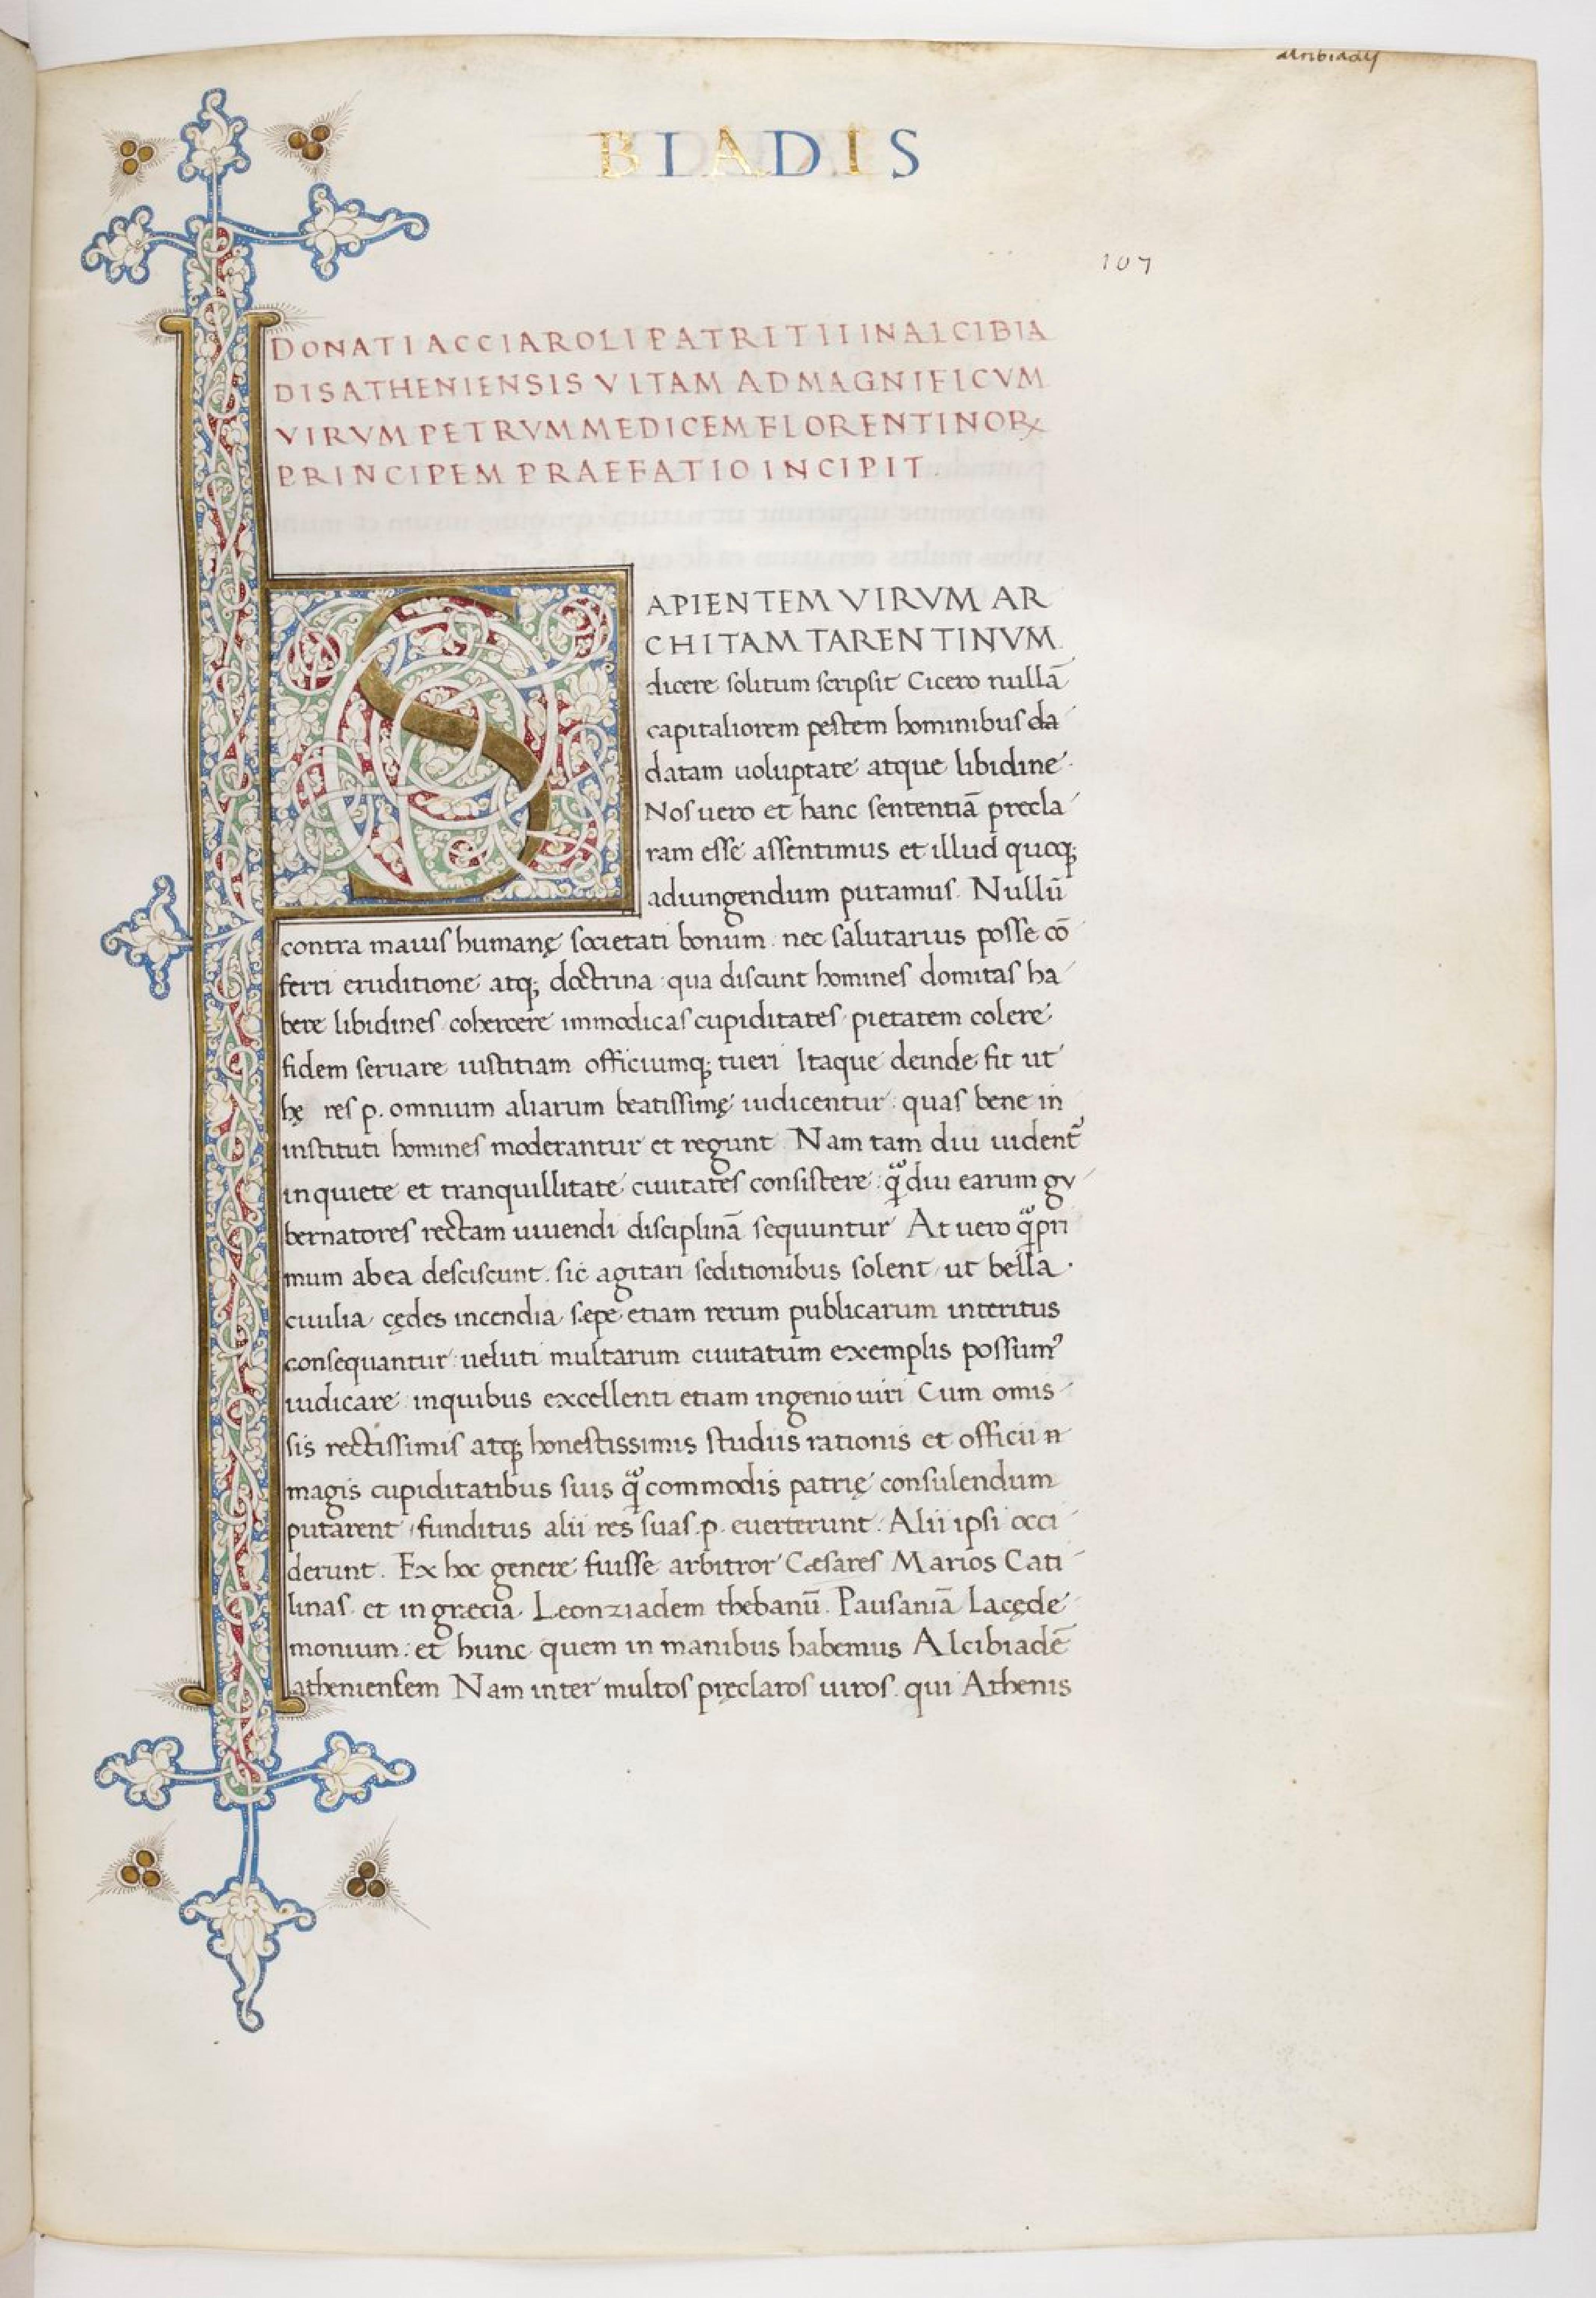 alcibiadis
BIADIS
107
DONATI ACCIAROLI PATRITII IN ALCIBIA
DIS ATHENIENSIS VITAM AD MAGNIFICVM
VIRVM PETRVM MEDICEM FLORENTINOꝝ
PRINCIPEM PRAEFATIO INCIPIT.
SAPIENTEM VIRVM AR
CHITAM TARENTINVM
dicere solitum scripsit Cicero nullā
capitaliorem pestem hominibus da
datam uoluptate atque libidine.
Nos uero et hanc sententiā precla
ram esse assentimus et illud quoq;
adiungendum putamus. Nullū
contra maius humanę societati bonum: nec salutarius posse cō
ferri eruditione atq; doctrina: qua discunt homines domitas ha
bere libidines cohercere immodicas cupiditates pietatem colere
fidem seruare iustitiam officiumq; tueri Itaque deinde fit ut
hę res p. omnium aliarum beatissimę iudicentur: quas bene in
instituti homines moderantur et regunt. Nam tam diu uident᷑
in quiete et tranquillitate ciuitates consistere: qᷓ diu earum gu
bernatores rectam uiuendi disciplinā sequuntur At uero qᷓ pri
mum ab ea desciscunt. sic agitari seditionibus solent, ut bella.
ciuilia cędes incendia sæpe etiam rerum publicarum interitus
consequantur: ueluti multarum ciuitatum exemplis possumꝰ
iudicare: in quibus excellenti etiam ingenio uiri Cum omis
sis rectissimis atq; honestissimis studiis rationis et officii n
magis cupiditatibus suis qᷓ commodis patrię consulendum
putarent, funditus alii res suas .p. euerterunt. Alii ipsi occi
derunt. Ex hoc genere fuisse arbitror Cæsares Marios Cati
linas. et in græcia. Leonziadem thebanū. Pausaniā Lacęde
monium: et hunc quem in manibus habemus Alcibiadē
atheniensem Nam inter multos pręclaros uiros. qui Athenis